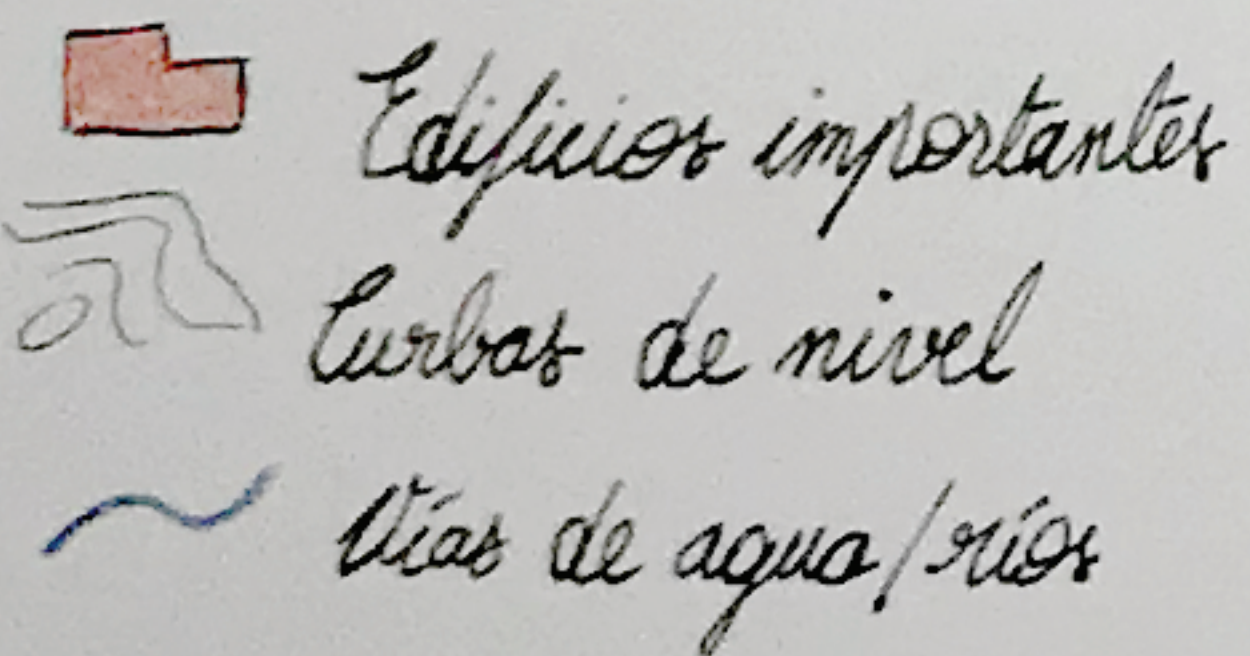 Edificios importantes
Curbas de nivel
Vías de agua/ríos